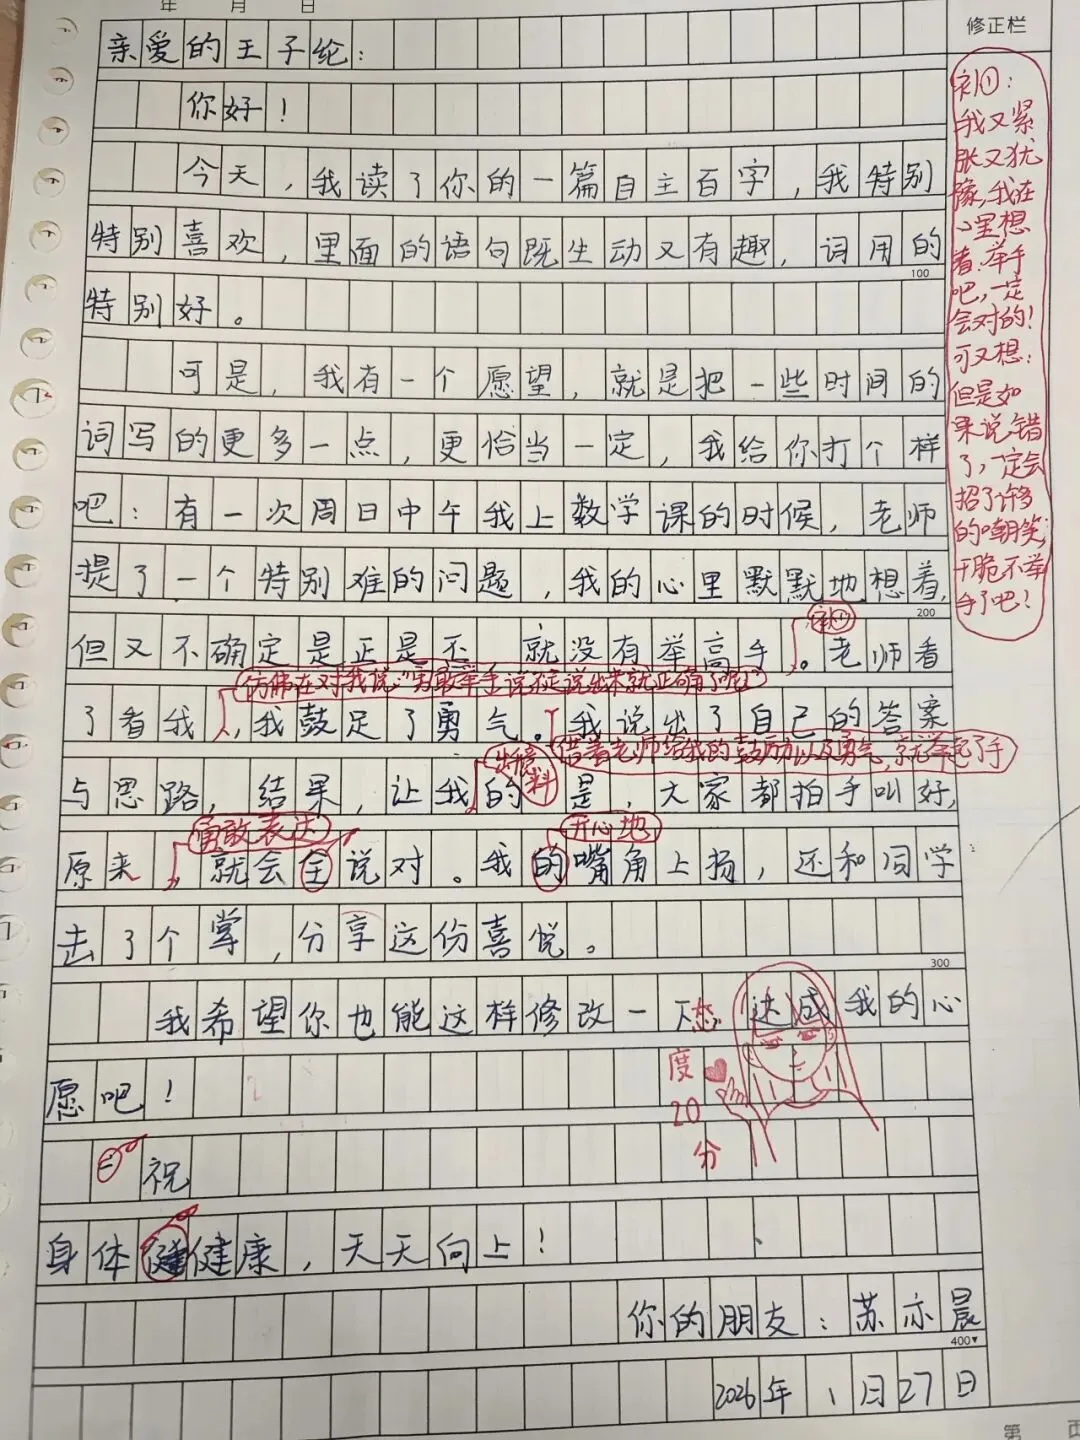 年 月 日
修正栏
亲爱的王子纶：
你好！
今天，我读了你的一篇自主百字，我特别
特别喜欢，里面的语句既生动又有趣，词用的
100
特别好。
可是，我有一个愿望，就是把一些时间的
词写的更多一点，更恰当一定，我给你打个样
吧：有一次周日中午我上数学课的时候，老师
提了一个特别难的问题，我的心里默默地想着，
200
补①
但又不确定是正是不 就没有举高手。老师看
仿佛在对我说："勇敢举手，说不定说出来就正确了呢！"
了看我，我鼓足了勇气。我说出了自己的答案
借着老师给我的鼓励以及勇气，就举起了手
出意料
与思路，结果，让我的 是，大家都拍手叫好，
勇敢表达
开心地
原来，就会全说对。我的嘴角上扬，还和同学
击了个掌，分享这份喜悦。
300
我希望你也能这样修改一下，达成我的心
愿吧！
祝
身体健健康，天天向上！
你的朋友：苏亦晨
400▼
2026年1月27日
补①：
我又紧
张又犹
豫，我在
心里想
着：举手
吧，一定
会对的！
可又想：
但是如
果说错
了，一定会
招了许多
的嘲笑，
干脆不举
手了吧！
态
度
20
分
第 页